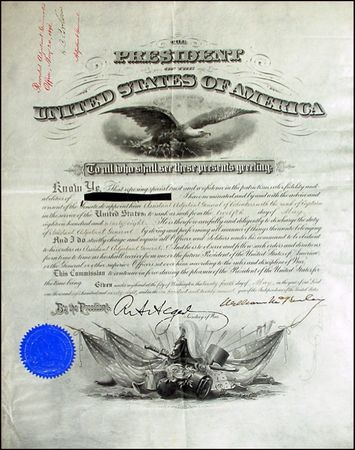 THE
PRESIDENT
OF THE
UNITED STATES OF AMERICA
To all who shall see these presents greeting:
Know Ye, That reposing special trust and confidence in the patriotism, valor, fidelity and
abilities of I have nominated and by and with the advice and
consent of the Senate do appoint him Assistant Adjutant General of Volunteers with the rank of Captain
in the service of the United States: to rank as such from the twelfth day of May
eighteen hundred and ninety eight. He is therefore carefully and diligently to discharge the duty
of Assistant Adjutant General by doing and performing all manner of things thereunto belonging.
And I do strictly charge and require all Officers and Soldiers under his command to be obedient
to his orders as Assistant Adjutant General. And he is to observe and follow such orders and directions
from time to time as he shall receive from me or the future President of the United States of America
or the General or other superior Officers set over him according to the rules and discipline of War.
This Commission to continue in force during the pleasure of the President of the United States for
the time being.
Given under my hand at the City of Washington this day of May in the year of our Lord
one thousand eight hundred and ninety eight and in the one hundred and twenty second year of the Independence of the United States.
By the President:
R. A. Alger
William McKinley
Secretary of War.